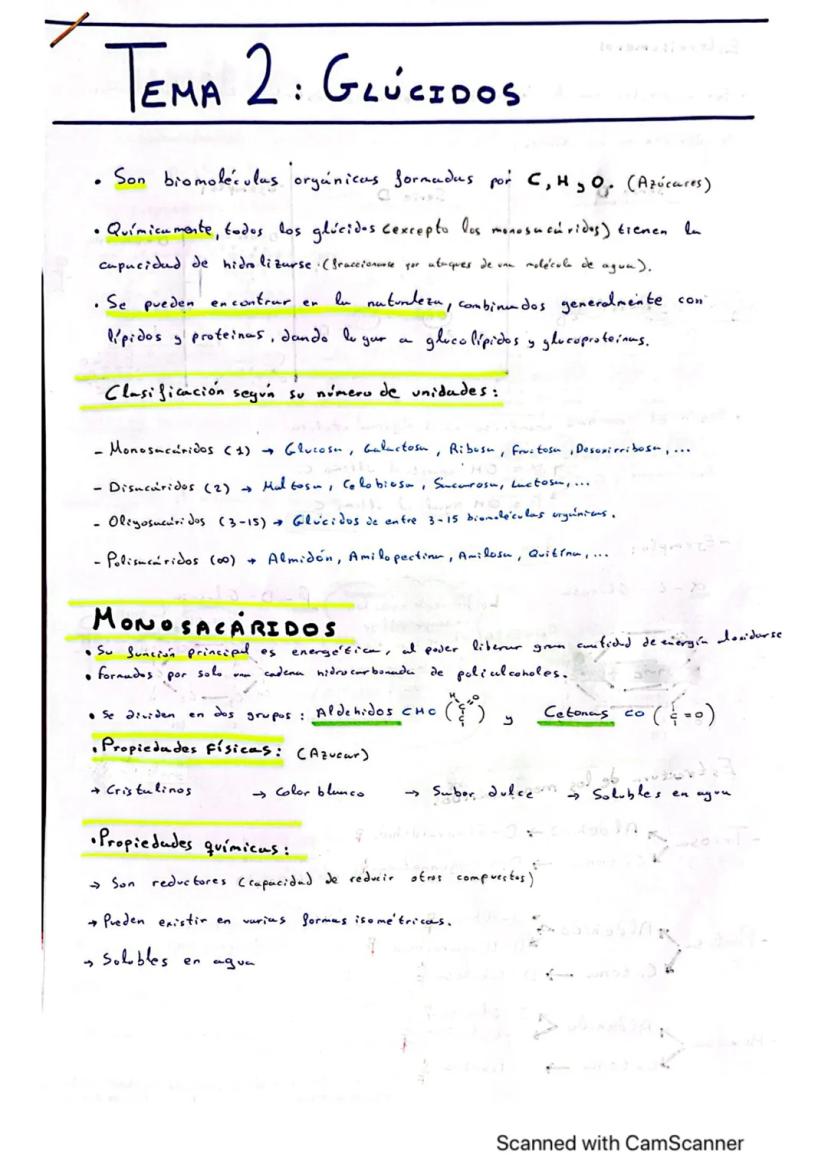 TEMA 2: GLÚCIDOS
• Son biomoléculas orgánicas formadas por C, H y O. (Azúcares)
• Químicamente, todos los glúcidos (excepto los monosacáridos) tienen la
capacidad de hidrolizarse (fraccionarse por ataques de una molécula de agua).
• Se pueden encontrar en la naturaleza, combinados generalmente con
lípidos y proteínas, dando lugar a glucolípidos y glucoproteínas.
Clasificación según su número de unidades:
- Monosacáridos (1) → Glucosa, Galactosa, Ribosa, Fructosa, Desoxirribosa, ...
- Disacáridos (2) → Maltosa, Celobiosa, Sacarosa, Lactosa, ...
- Oligosacáridos (3-15) → Glúcidos de entre 3-15 biomoléculas orgánicas.
- Polisacáridos (∞) → Almidón, Amilopectina, Amilosa, Quitina, ...
MONOSACÁRIDOS
• Su función principal es energética, al poder liberar gran cantidad de energía al oxidarse
• Formados por solo una cadena hidrocarbonada de polialcoholes.
• Se dividen en dos grupos: Aldehídos CHO (H C=O) y Cetonas CO (C=O)
• Propiedades Físicas: (Azucar)
→ Cristalinos → Color blanco → Sabor dulce → Solubles en agua
• Propiedades químicas:
→ Son reductores (capacidad de reducir otros compuestos)
→ Pueden existir en varias formas isométricas.
→ Solubles en agua
Scanned with CamScanner